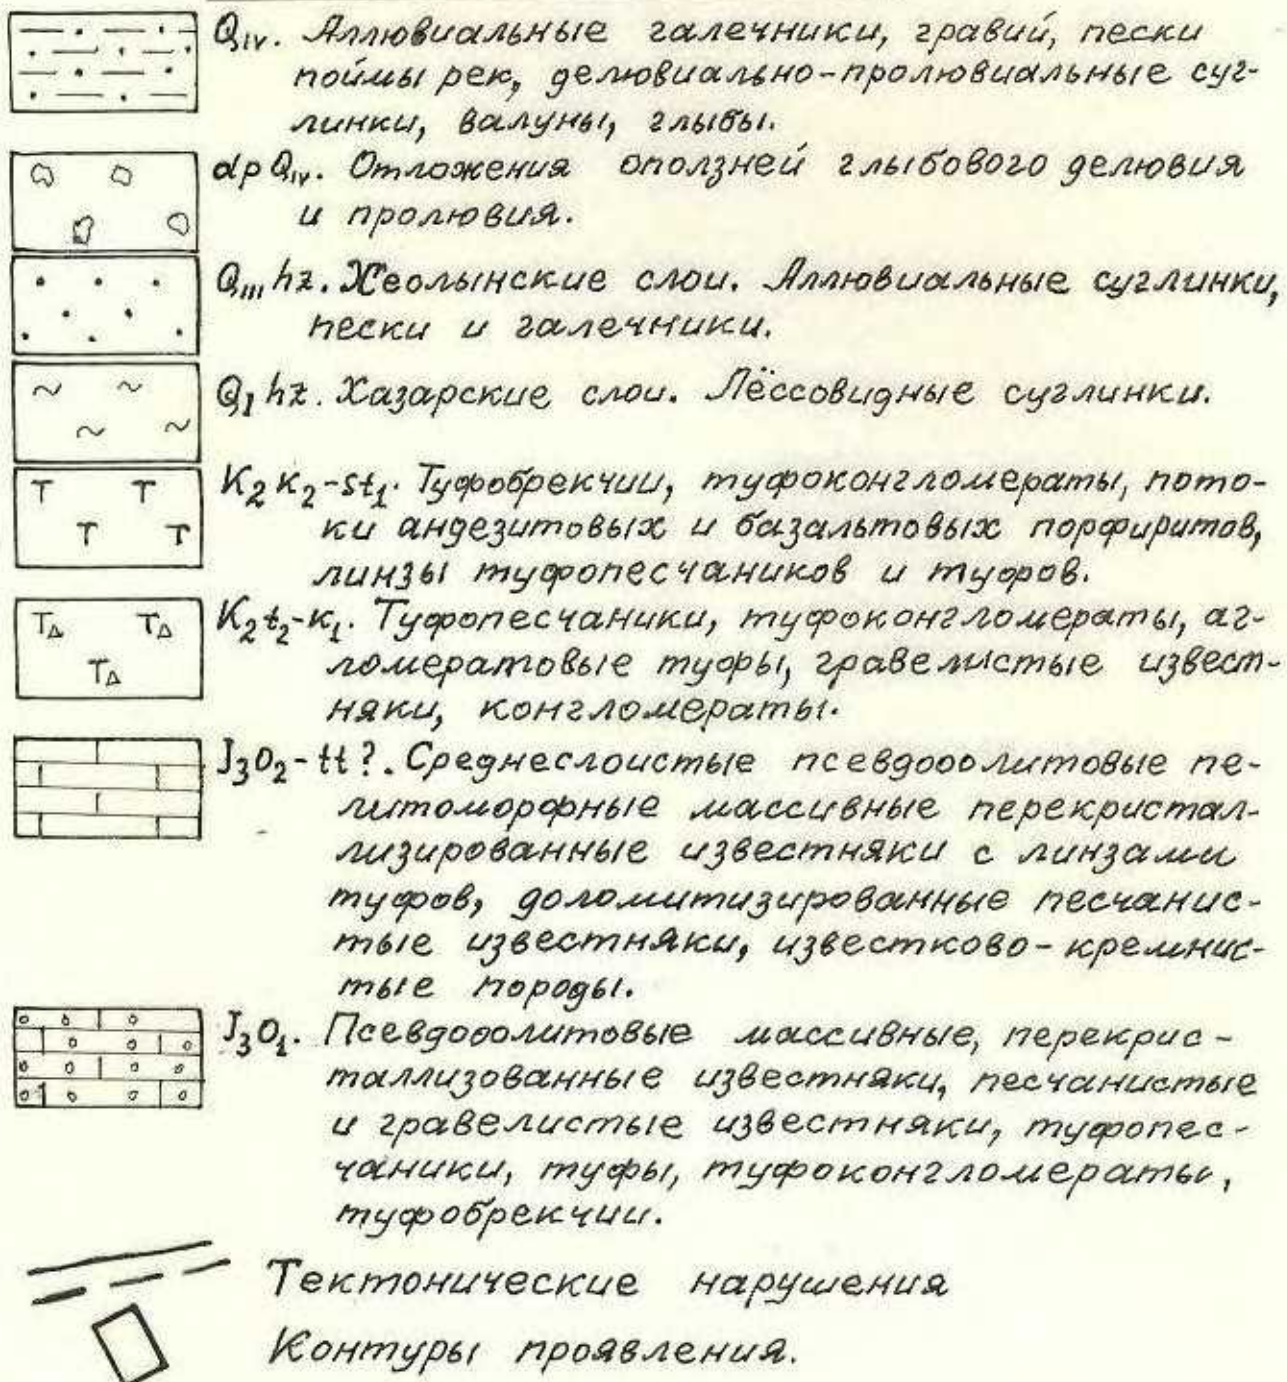 Qıv. Аллювиальные галечники, гравий, пески
поймы рек, делювиально-пролювиальные суг-
линки, валуны, глыбы.
dp Qıv. Отложения оползней глыбового делювия
и пролювия.
Qııı hz. Хволынские слои. Аллювиальные суглинки,
пески и галечники.
QI hz. Хазарские слои. Лёссовидные суглинки.
K₂ к₂-st₁. Туфобрекчии, туфоконгломераты, пото-
ки андезитовых и базальтовых порфиритов,
линзы туфопесчаников и туфов.
K₂t₂-к₁. Туфопесчаники, туфоконгломераты, аг-
ломератовые туфы, гравелистые извест-
няки, конгломераты.
J₃O₂-tt?. Среднеслоистые псевдооолитовые пе-
литоморфные массивные перекристал-
лизированные известняки с линзами
туфов, доломитизированные песчанис-
тые известняки, известково-кремнис-
тые породы.
J₃O₁. Псевдооолитовые массивные, перекрис-
таллизованные известняки, песчанистые
и гравелистые известняки, туфопес-
чаники, туфы, туфоконгломераты,
туфобрекчии.
Тектонические нарушения
Контуры проявления.